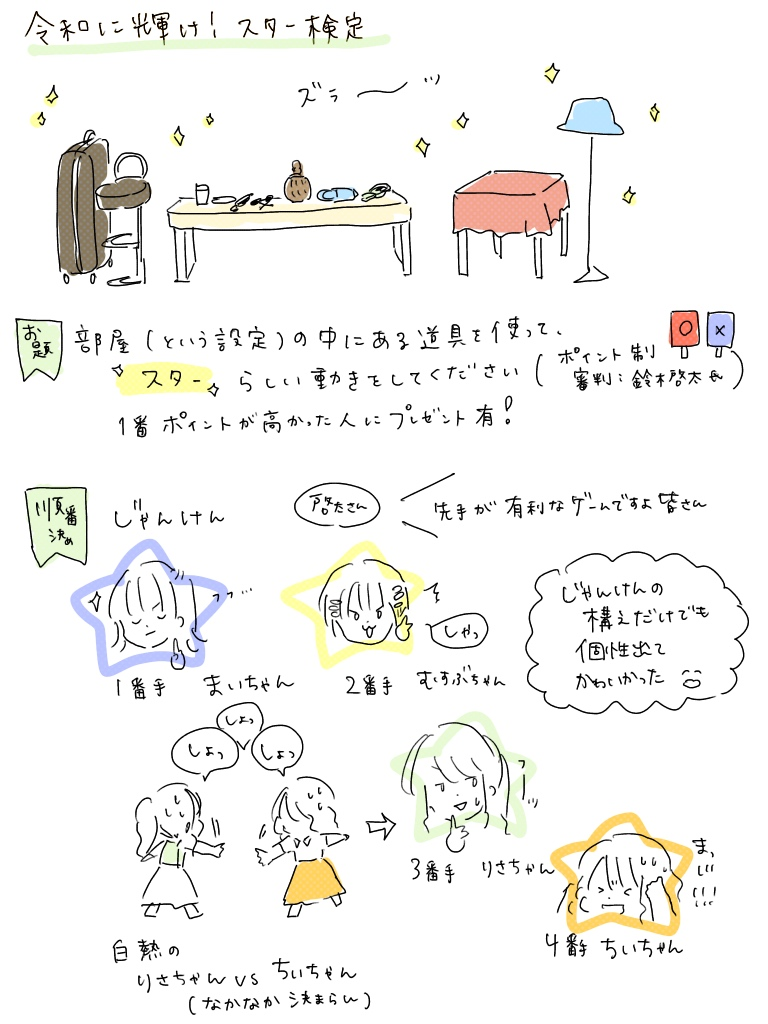 令和に輝け！スター検定
ズラ〜ッ
お題
部屋（という設定）の中にある道具を使って、
スターらしい動きをしてください
（ポイント制
審判：鈴木啓太氏）
○ ×
1番ポイントが高かった人にプレゼント有！
順番決め
じゃんけん
啓太さん
先手が有利なゲームですよ皆さん
じゃんけんの
構えだけでも
個性出て
かわいかった
しゃっ
1番手 まいちゃん
2番手 むすぶちゃん
しょっ
しょっ
しょっ
3番手 りさちゃん
4番手 ちいちゃん
白熱の
りさちゃん vs ちいちゃん
（なかなか決まらん）